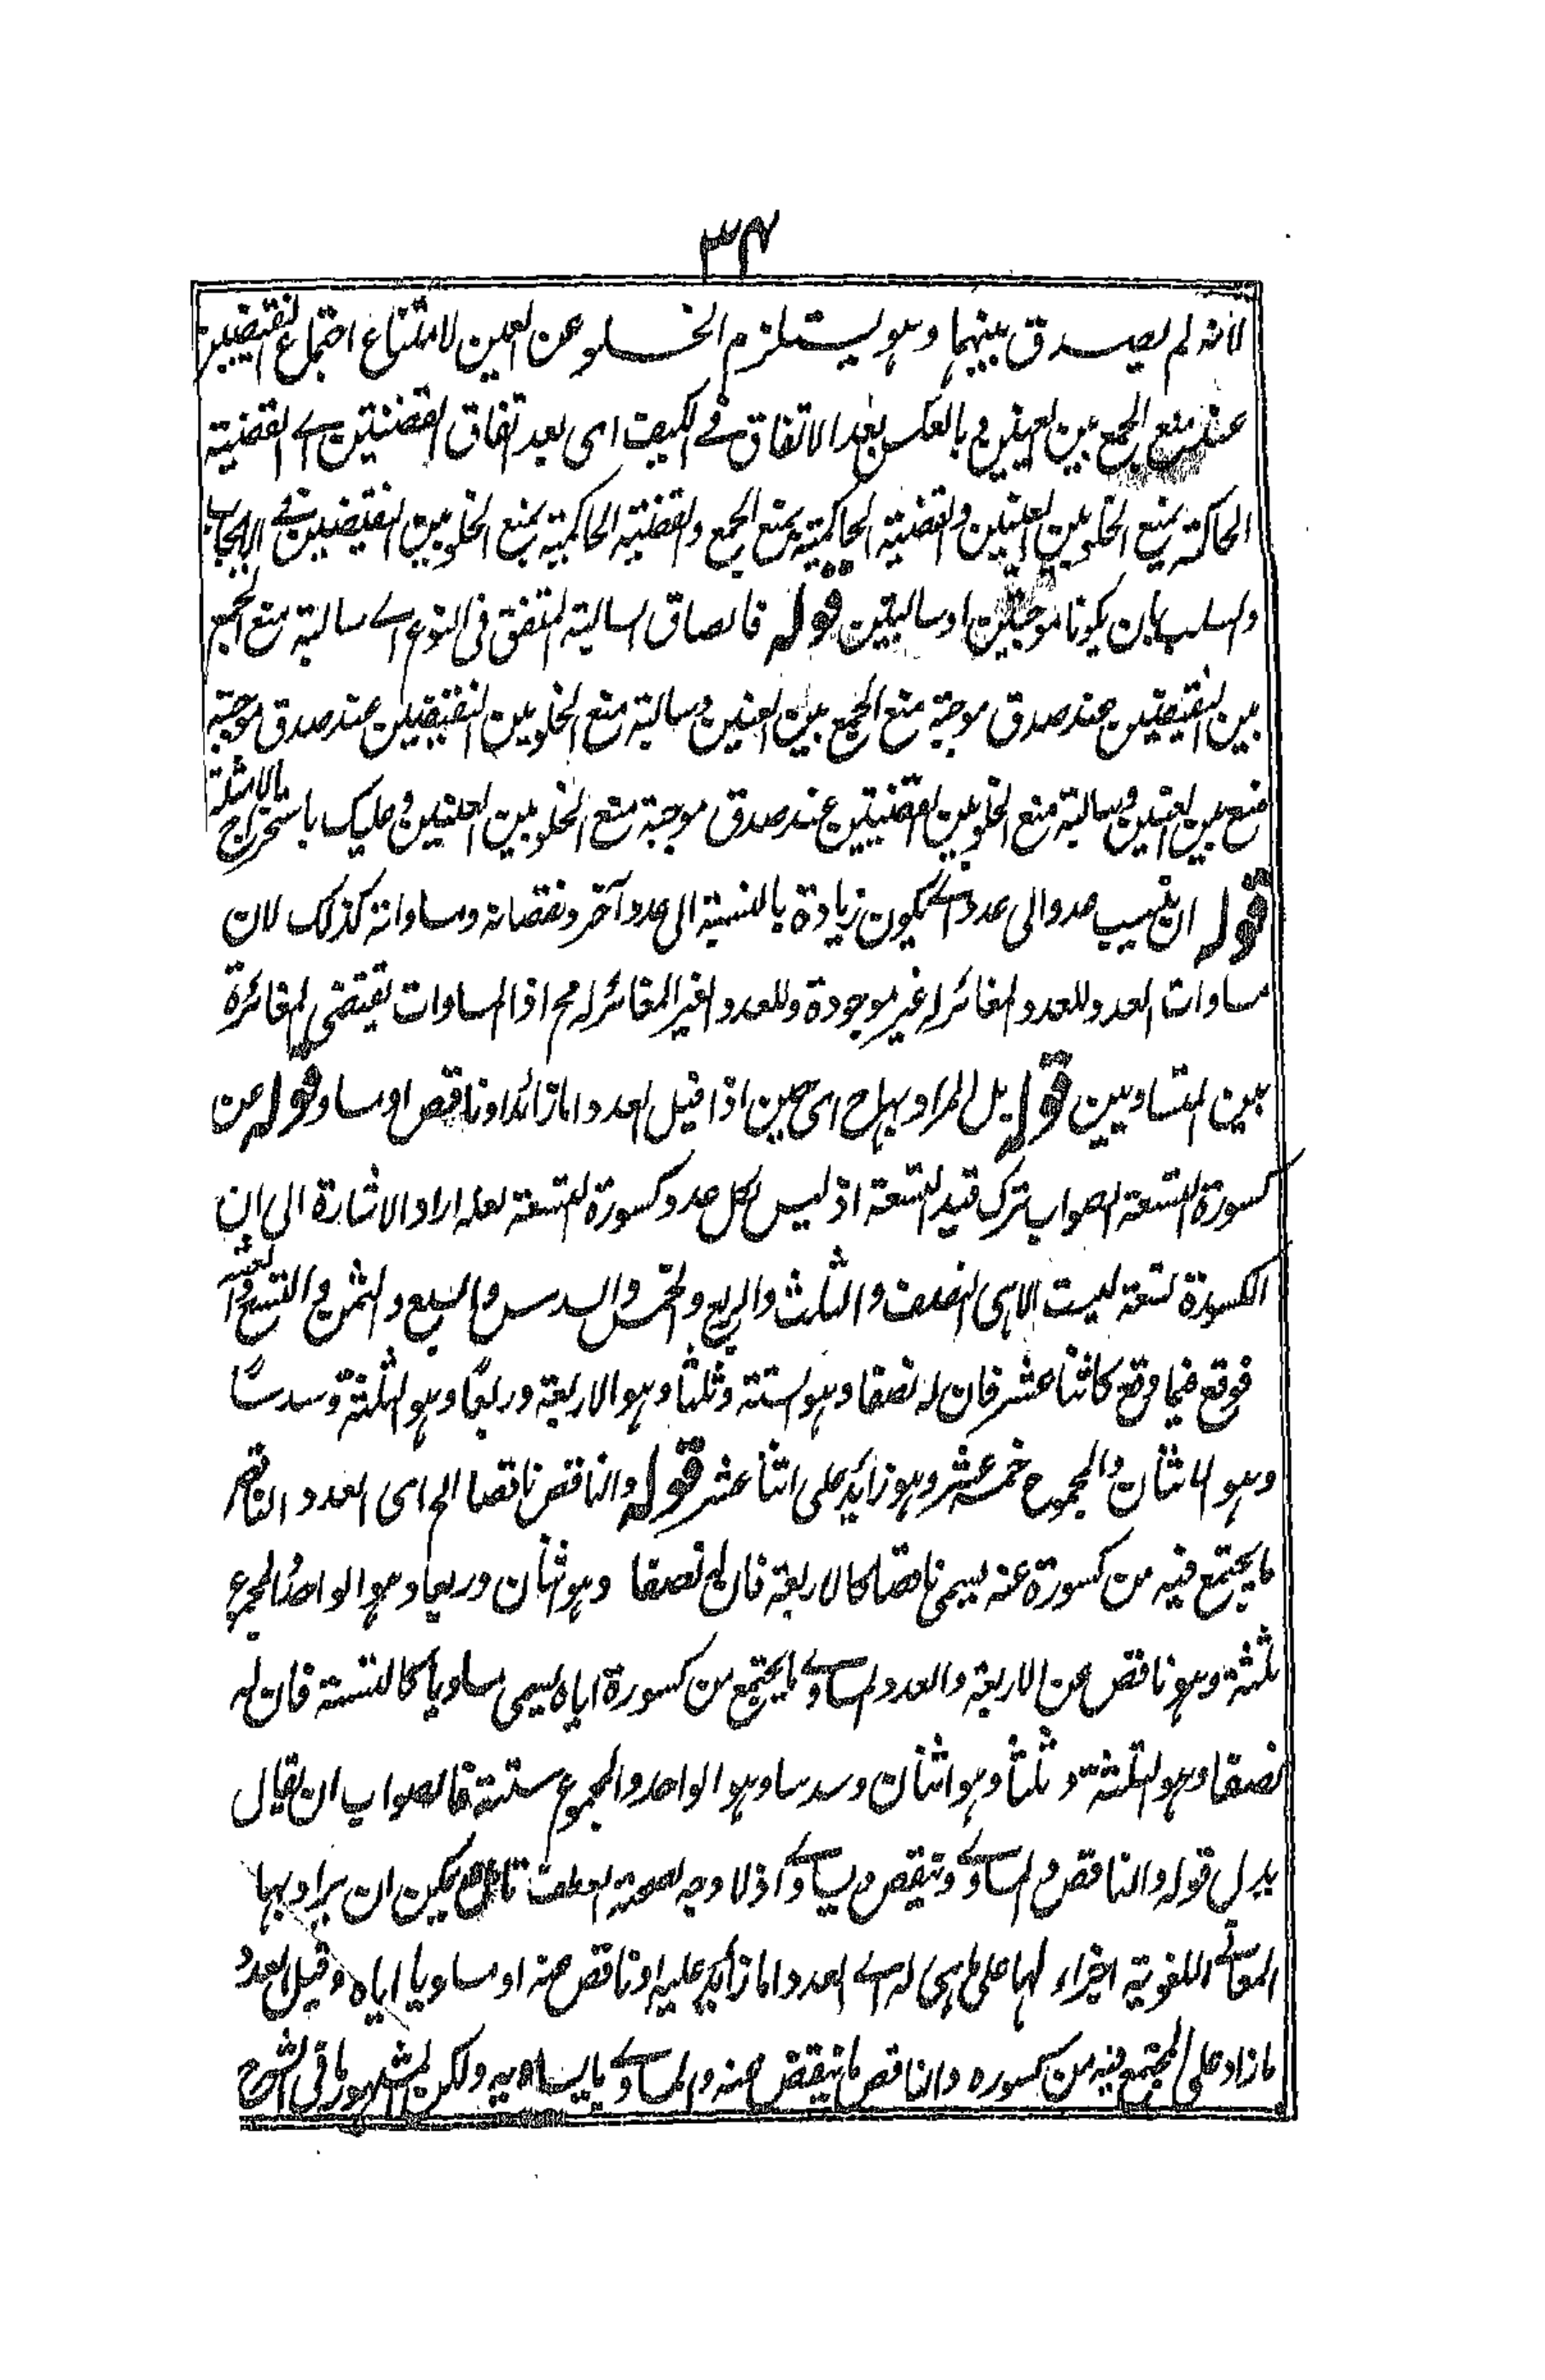 ٣٤
لانه لم يصدق بينهما وهو يستلزم الخلو عن العين لامتناع اجتماع النقيضين
عند منع الجمع بين العينين و بالعكس بعد الاتفاق في الكيف اى بعد اتفاق القضيتين اے القضية
الحاكمة بمنع الخلو بين العينين والقضية الحاكمية بمنع الجمع والقضية الحاكمية بمنع الخلو بين النقيضين في الايجاب
والسلب بان يكونا موجبتين او سالبتين قوله فالصاق السالبة المتفق فى النوع اے سالبة منع الجمع
بين النقيضين عند صدق موجبة منع الجمع بين العينين وسالبة منع الخلو بين النقيضين عند صدق موجبة
منع بين العينين وسالبة منع الخلو بين القضيتين عند صدق موجبة منع الخلو بين العينين وعليك باستخراج بالامثلة
قوله ان ينسب عدد الى عدد اے يكون زيادة بالنسبة الى عدد آخر ونقصانه ومساواته كذلك لان
مساوات العدد للعدد المغائر له غير موجودة وللعدد الغير المغائر له مح اذا المساوات يقتضى المغائرة
بين المتساويين قوله بل المراد بها ح اى حين اذا قيل العدد اما زائد او ناقص او مساو قوله من
كسورة التسعة الصواب ترك قيد التسعة اذ ليس لكل عدد كسورة التسعة لعله اراد الاشارة الى ان
الكسورة تسعة ليست الا هى النصف والثلث والربع والخمس والسدس والسبع والثمن والتسع والعشر
فوقع فيما وقع كاثنا عشر فان له نصفا وهو ستة وثلثا وهو الاربعة وربعًا وهو الثلثة وسدسًا
وهو الاثنان والمجموع خمسة عشر وهو زائد على اثنا عشر قوله والناقص ناقصا الخ اى العدد الناقص
ما يجتمع فيه من كسورة عنه يسمى ناقصا كالاربعة فان له نصفا وهو اثنان وربعا وهو الواحد المجموع
ثلثة وهو ناقص عن الاربعة والعدد المساوے ما يجتمع من كسورة اياه يسمى مساويا كالستة فان له
نصفا وهو الثلثة و ثلثا وهو اثنان وسدسا وهو الواحد والمجموع ستة فالصواب ان يقال
بدل قوله والناقص و المساوے وينقص و يساوے اذ لا وجه لصحة العطف تامل يمكن ان يراد بها
المعانے اللغوية اجزاء لها على ما هى له اے العدد اما زائد عليه او ناقص عنه او مساويا اياه وقيل العدد
ما زاد على المجتمع فيه من كسوره والناقص ما ينقص عنه والمساوے ما يساويه ولكن المشهور ما فى الشرح